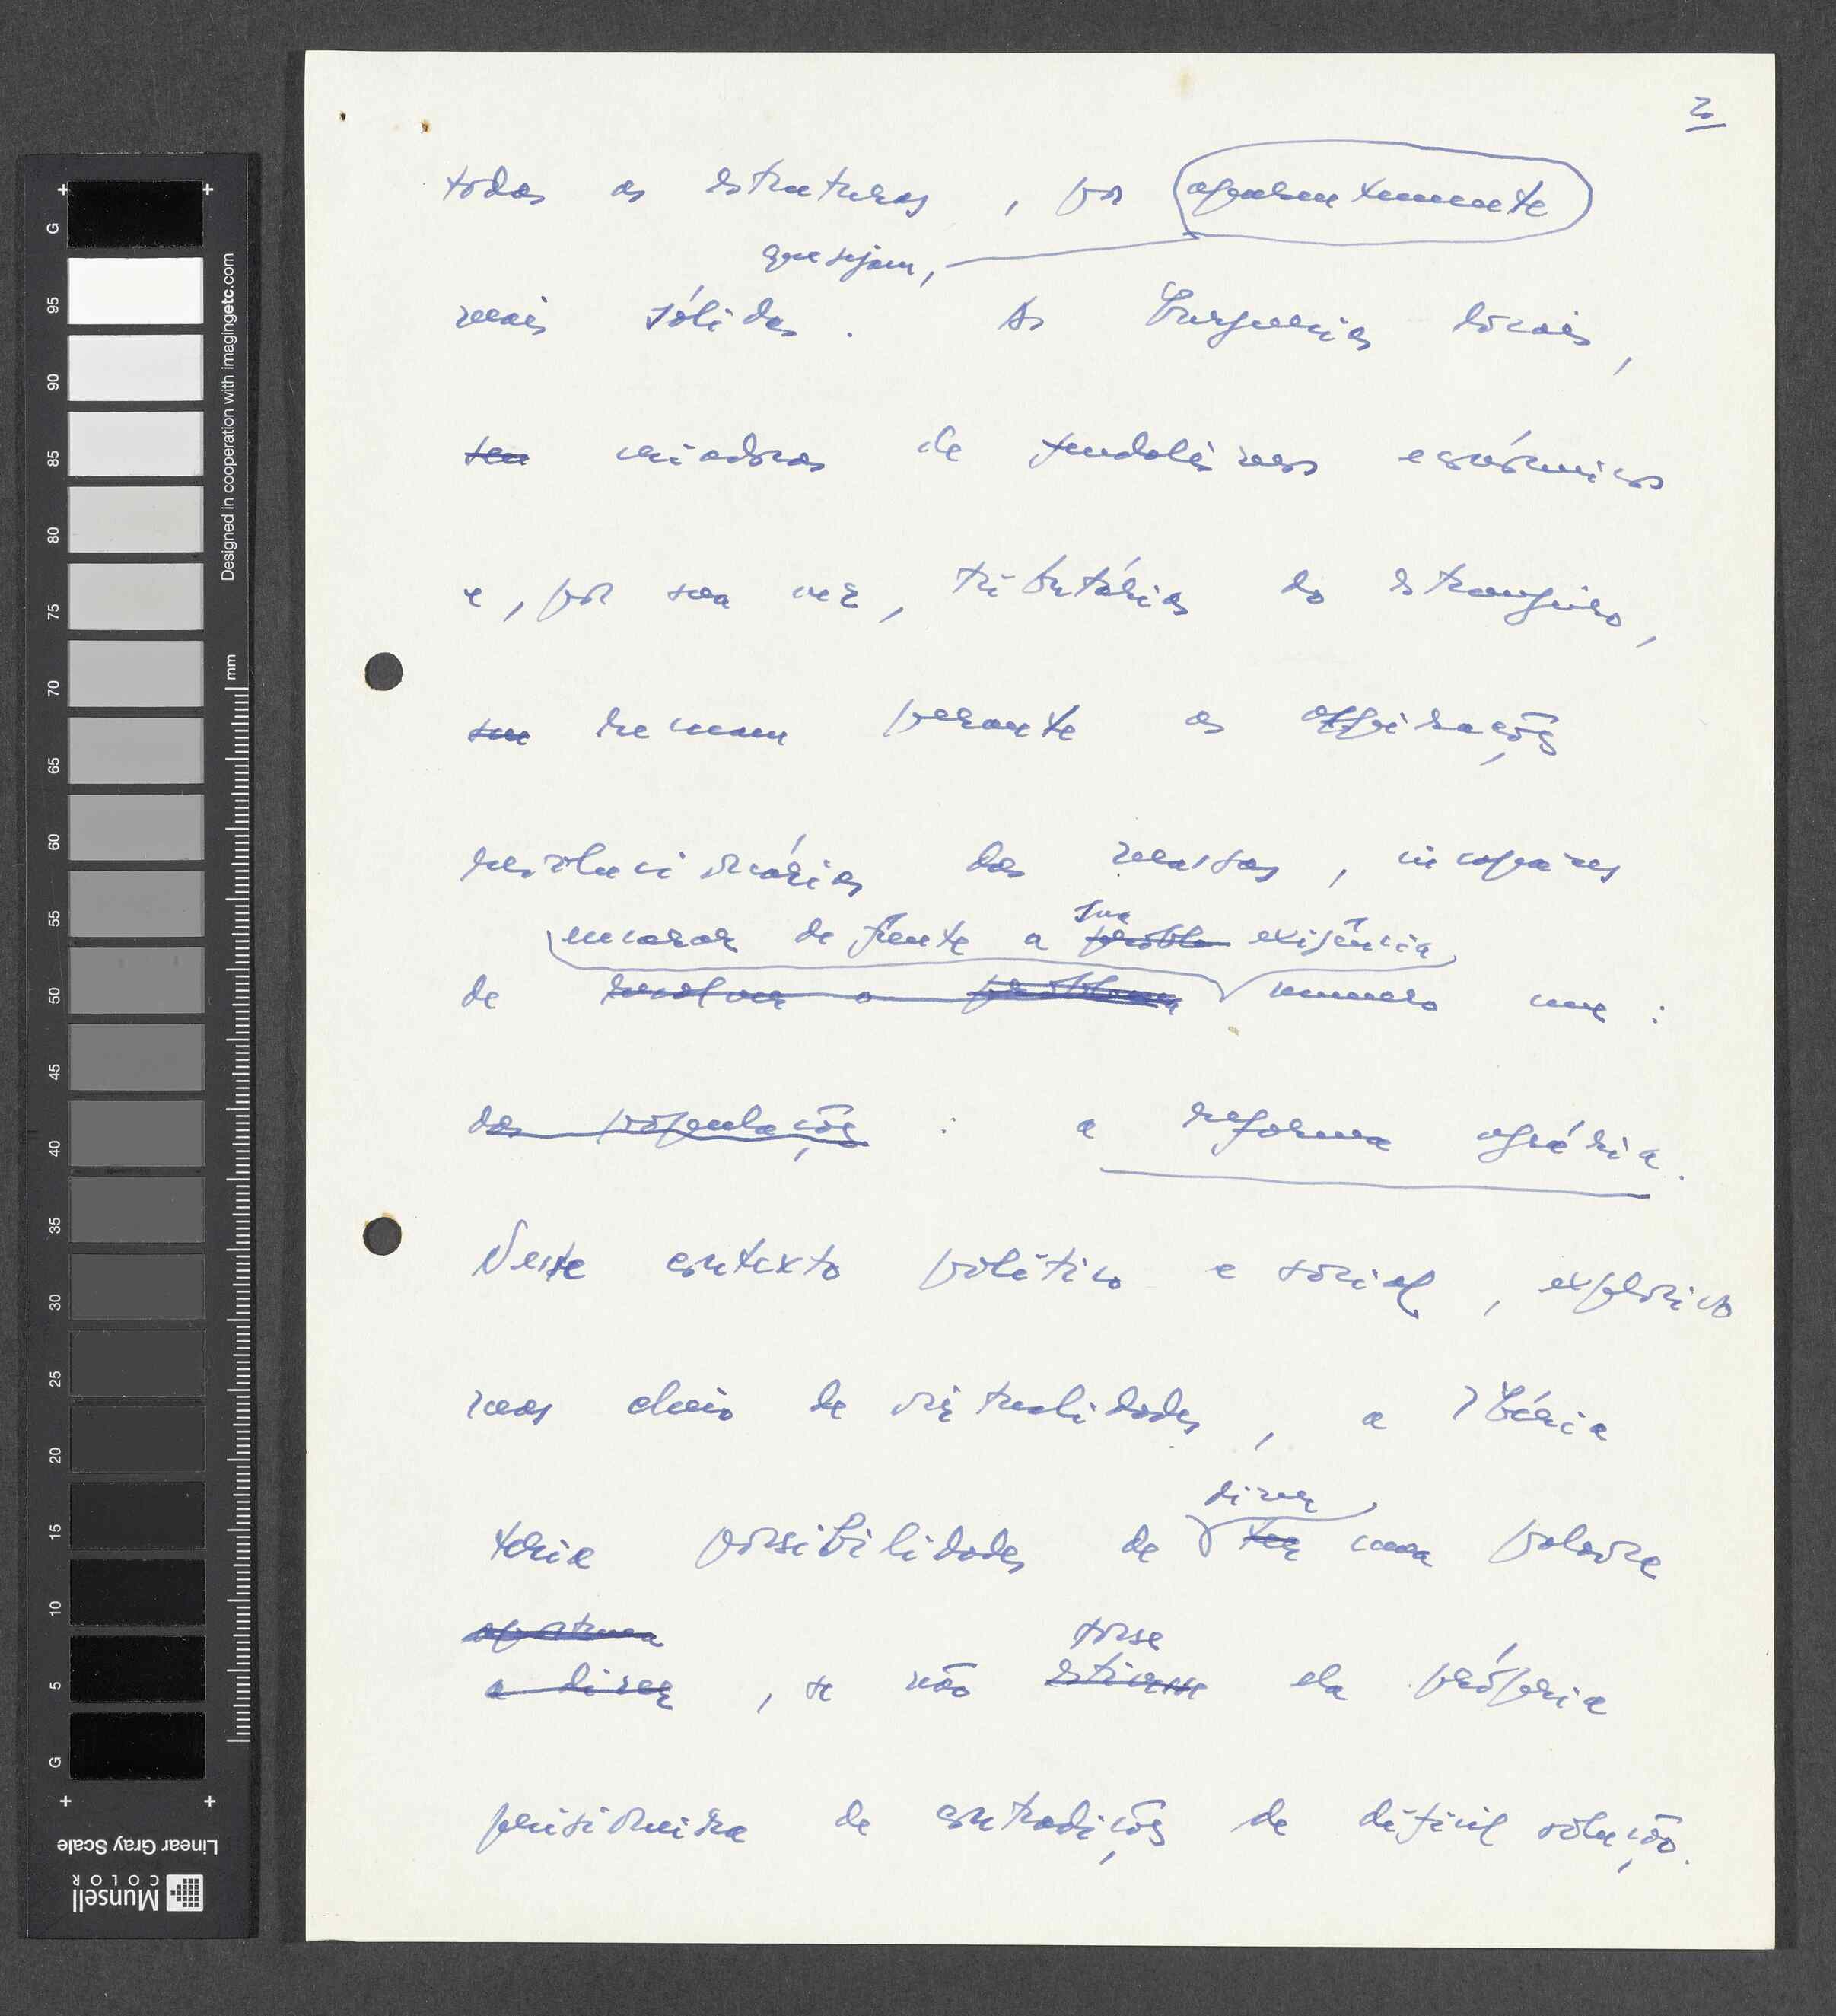 2
todas as estruturas, por aparentemente
que sejam,
mais sólidas. As burguesias locais,
sem criadoras de feudalismos económicos
e, por sua vez, tributárias do estrangeiro,
sem tremem perante as aspirações
revolucionárias das massas, incapazes
encarar de frente a proble sua exigência
de resolver o problema número um:
das populações : a reforma agrária.
Neste contexto político e social, explosivo
mas cheio de virtualidades, a Ibéria
dizer
teria possibilidades de ter uma palavra
oportuna
a dizer, se não estivesse fosse ela própria
prisioneira de contradições de difícil solução.
G
95
90
85
80
75
70
65
60
55
50
45
40
35
30
25
20
15
10
5
G
mm
Designed in cooperation with imagingetc.com
Linear Gray Scale
Munsell
COLOR